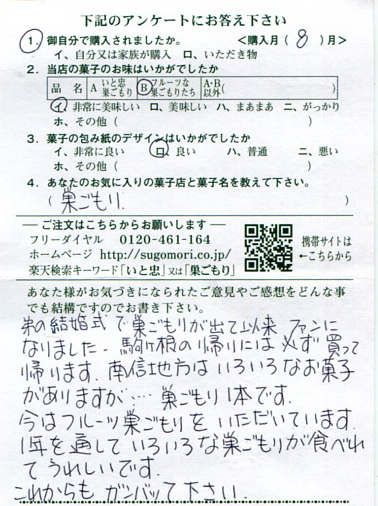 下記のアンケートにお答え下さい
1. 御自分で購入されましたか。 <購入月( 8 )月>
イ、自分又は家族が購入 ロ、いただき物
2. 当店の菓子のお味はいかがでしたか
品 名 A いと忠巣ごもり B フルーツな巣ごもりたち A・B以外( )
イ、非常に美味しい ロ、美味しい ハ、まあまあ ニ、がっかり
ホ、その他( )
3. 菓子の包み紙のデザインはいかがでしたか
イ、非常に良い ロ、良い ハ、普通 ニ、悪い
ホ、その他( )
4. あなたのお気に入りの菓子店と菓子名を教えて下さい。
( 巣ごもり )
―ご注文はこちらからお願いします―
フリーダイヤル 0120-461-164
ホームページ http://sugomori.co.jp/
楽天検索キーワード「いと忠」又は「巣ごもり」
携帯サイトは
←こちらから
あなた様がお気づきになられたご意見やご感想をどんな事
でも結構ですのでお書き下さい。
弟の結婚式で巣ごもりが出て以来 ファンに
なりました。駒ヶ根の帰りには必ず買って
帰ります。南信地方はいろいろなお菓子
がありますが…… 巣ごもり1本です。
今はフルーツ巣ごもりを いただいています。
1年を通していろいろな巣ごもりが食べれ
てうれしいです。
これからも ガンバッて下さい。